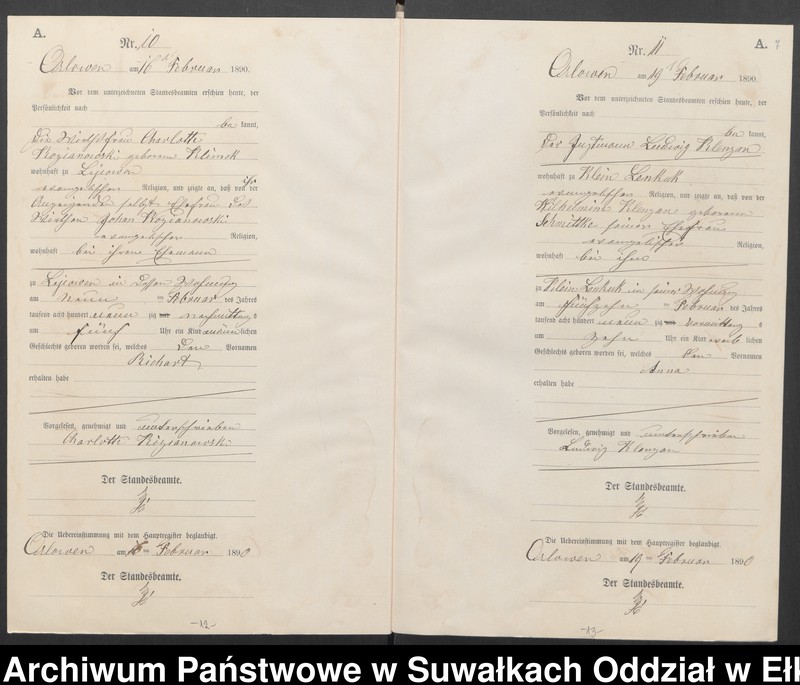 A.
Nr. 10
Orlowen am 16 Februar 1890.
Vor dem unterzeichneten Standesbeamten erschien heute, der
Persönlichkeit nach
be kannt,
die Wirthsfrau Charlotte
Rozianowski geborene Klimek
wohnhaft zu
evangelischer Religion, und zeigte an, daß von der
Anzeigenden selbst Ehefrau des
Wirthen Johan Rozianowski
evangelischer Religion,
wohnhaft bei ihrem Ehemann
zu in dessen Wohnung
am neun ten Februar des Jahres
tausend acht hundert neun zig nachmittag s
um fünf Uhr ein Kind männ lichen
Geschlechts geboren worden sei, welches den Vornamen
Richart
erhalten habe
Vorgelesen, genehmigt und unterschrieben
Charlotte Rozianowski
Der Standesbeamte.
Die Uebereinstimmung mit dem Hauptregister beglaubigt.
Orlowen am 16 ten Februar 1890
Der Standesbeamte.
-12-
A. 7
Nr. 11
Orlowen am 19 Februar 1890
Vor dem unterzeichneten Standesbeamten erschien heute, der
Persönlichkeit nach
be kannt,
der Instmann Ludwig Klenzan
wohnhaft zu Klein Lenkuk
evangelischer Religion, und zeigte an, daß von der
Wilhelmine Klenzan geborene
Schmittke seiner Ehefrau
evangelischer Religion,
wohnhaft bei ihm
zu Klein Lenkuk in seiner Wohnung
am fünfzehn ten Februar des Jahres
tausend acht hundert neun zig vormittag s
um zehn Uhr ein Kind weib lichen
Geschlechts geboren worden sei, welches den Vornamen
Anna
erhalten habe
Vorgelesen, genehmigt und unterschrieben
Ludwig Klenzan
Der Standesbeamte.
Die Uebereinstimmung mit dem Hauptregister beglaubigt.
Orlowen am 19 ten Februar 1890
Der Standesbeamte.
-13-
Archiwum Państwowe w Suwałkach Oddział w Ełk